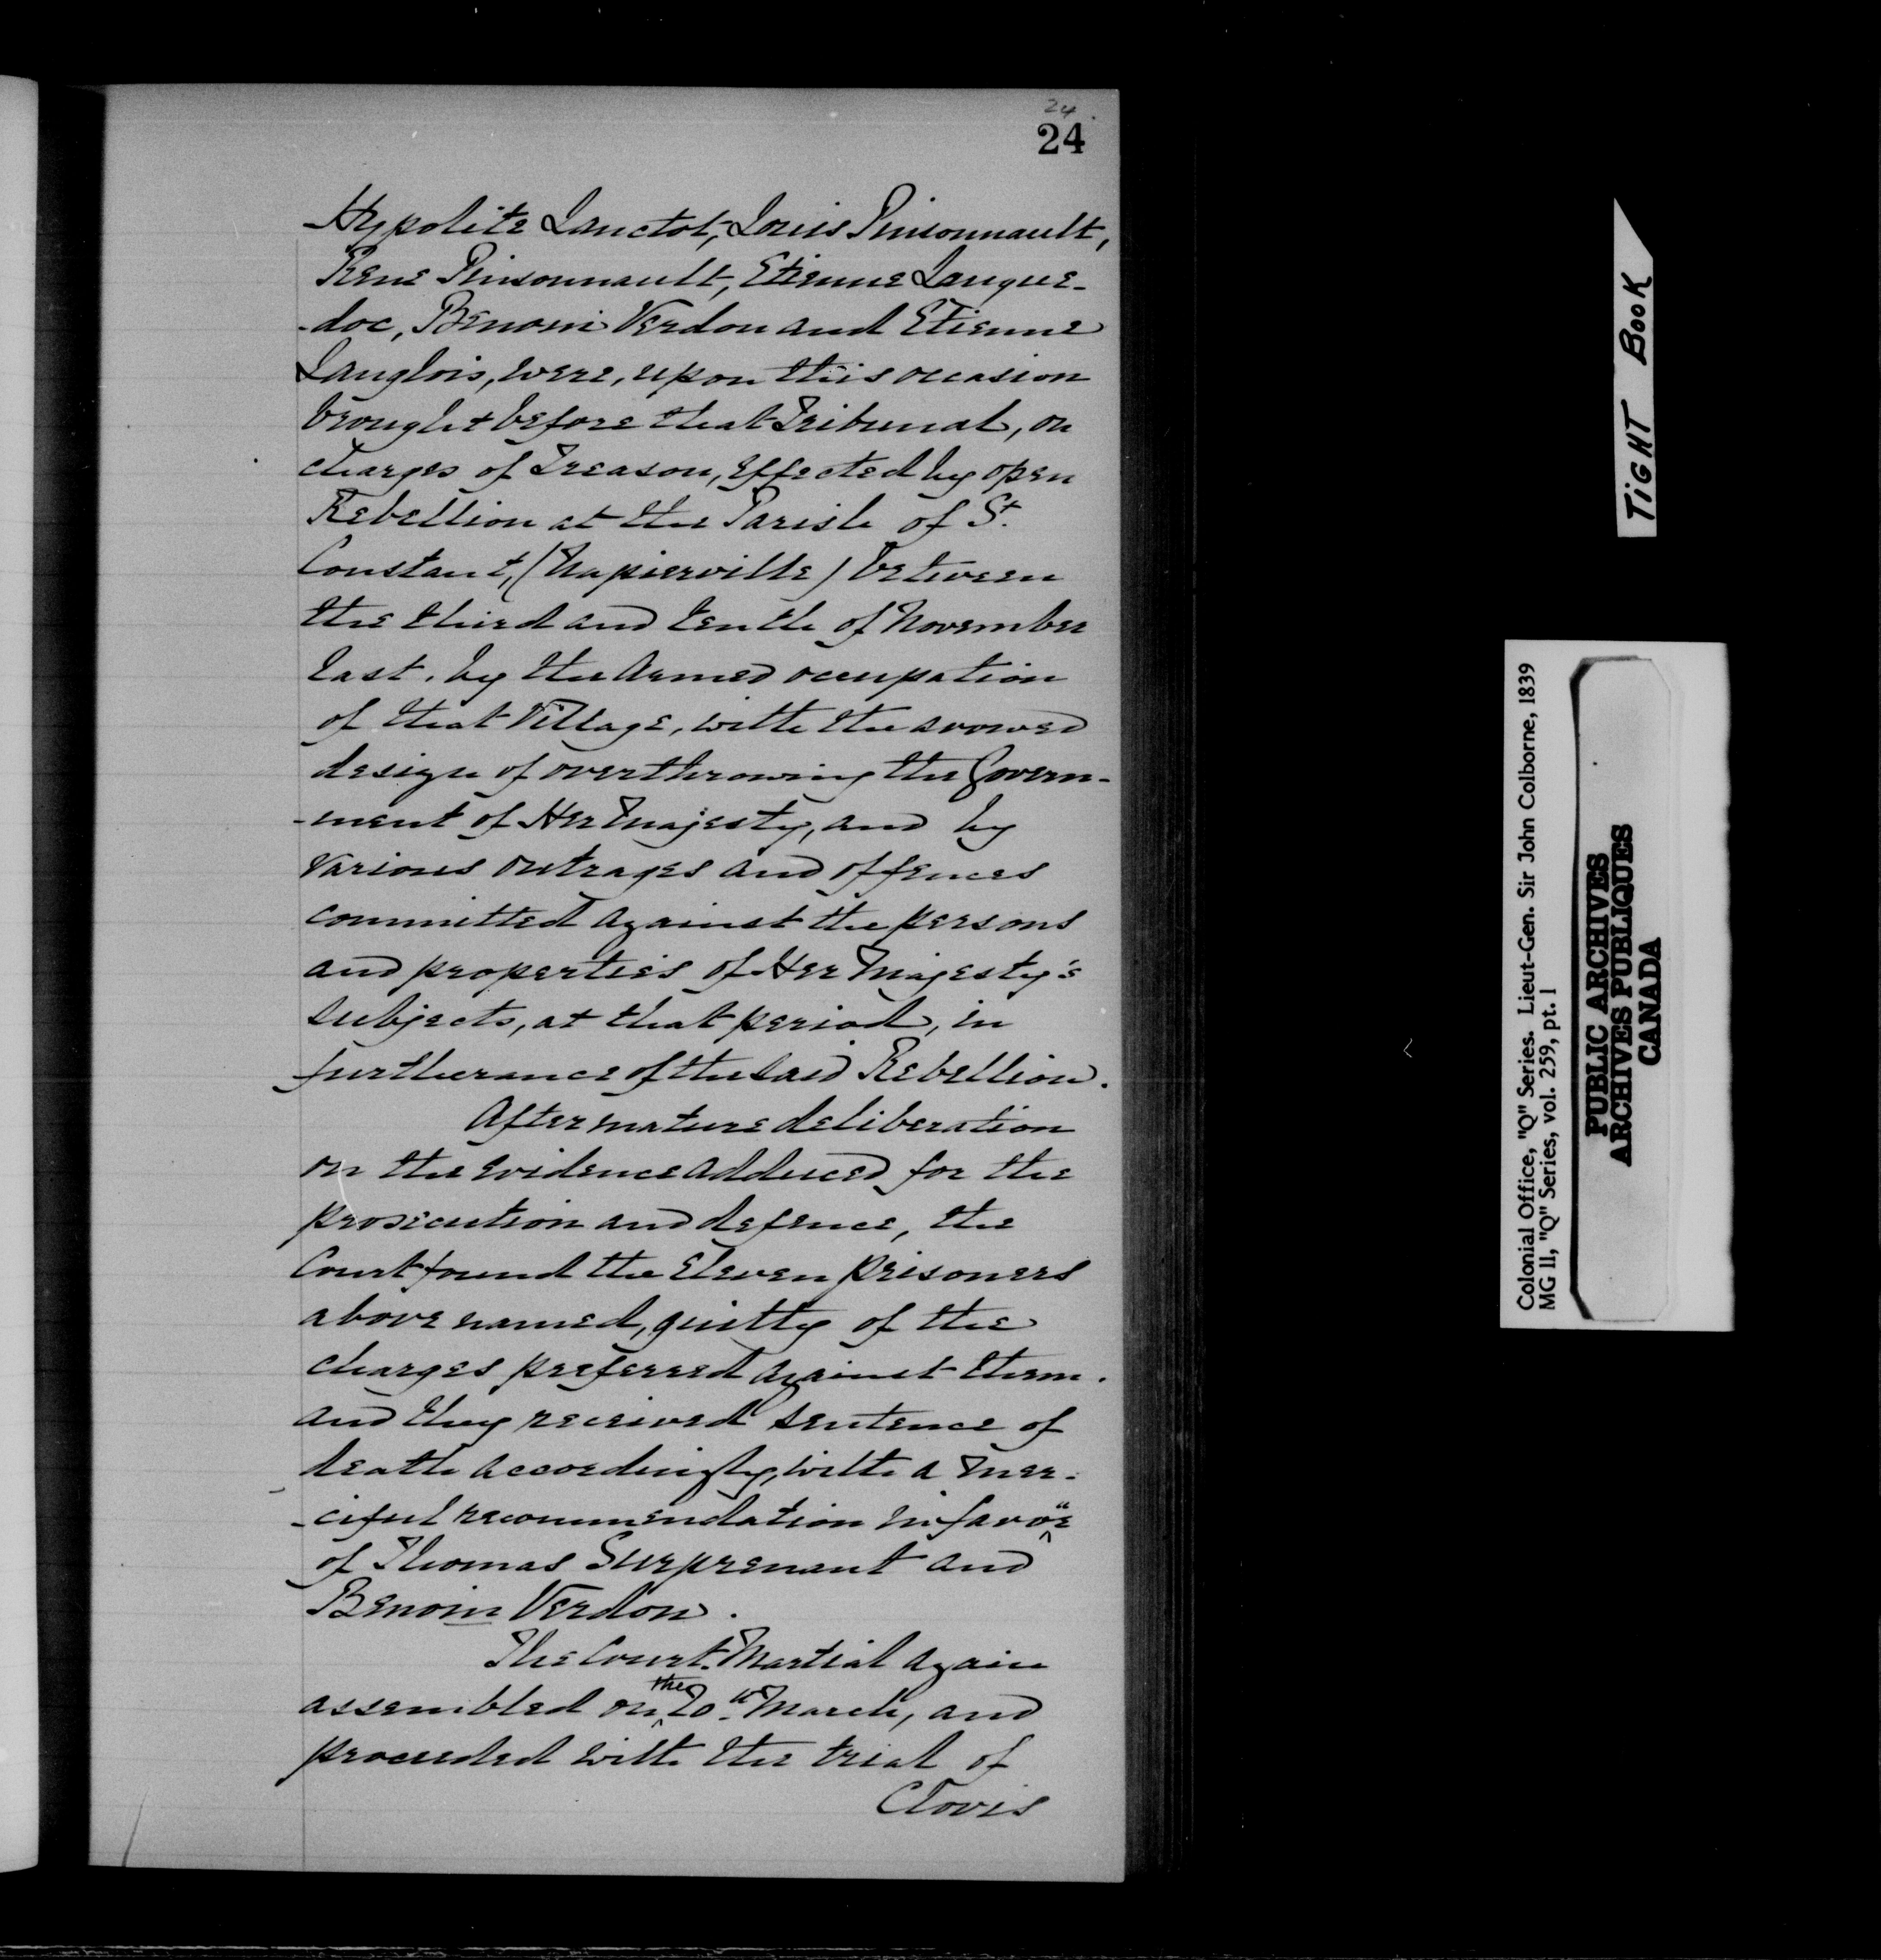 24
24
Hypolite Lanctot, Louis Pinsonnault,
Rene Pinsonnault, Etienne Langue-
-doc, Benoni Verdon and Etienne
Langlois, were, upon this occasion
brought before that Tribunal, on
charges of Treason, effected by open
Rebellion at the Parish of St.
Constant, (Napierville) between
the third and tenth of November
last, by the armed occupation
of that Village, with the avowed
design of overthrowing the Govern-
-ment of Her Majesty, and by
various outrages and offences
committed against the persons
and properties of Her Majesty's
subjects, at that period, in
furtherance of the said Rebellion.
After mature deliberation
on the evidence adduced for the
prosecution and defence, the
Court found the eleven prisoners
above named, guilty of the
charges preferred against them.
and they received sentence of
death accordingly, with a mer-
-ciful recommendation in favour
of Thomas Surprenant and
Benoin Verdon.
The Court Martial again
assembled on the 20th March, and
proceeded with the trial of
Clovis
TIGHT BOOK
Colonial Office, "Q" Series. Lieut-Gen. Sir John Colborne, 1839
MG 11, "Q" Series, vol. 259, pt. 1
PUBLIC ARCHIVES
ARCHIVES PUBLIQUES
CANADA